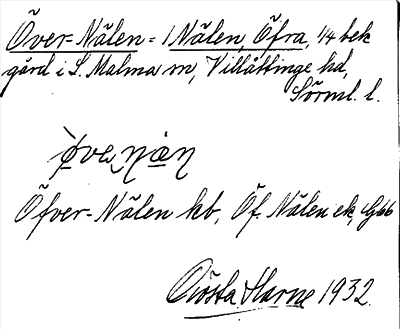 Över-Nälen = 1 Nälen, Öfra, 1/4 bek
gård i S. Malma sn, Villåttinge hd,
Sörml. l.
Öfver-Nälen kb, Öf. Nälen ek,
Gösta 1932.